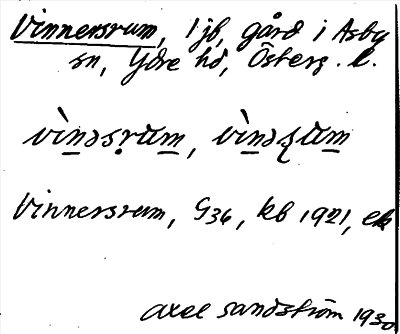 Vinnersrum, 1 jb, gård i Asby
sn, Ydre hd, Österg. l.
vìnəsrum, vìnəʂum
Vinnersrum, G36, kb 1921, ek
Axel Sandström 1930